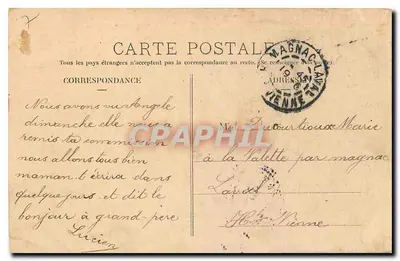 CARTE POSTALE
Tous les pays étrangers n'acceptent pas la correspondance au recto. (Se renseigner
MAGNAC-LAVAL
VIENNE
CORRESPONDANCE
ADRESSE
Nous avons vu Angele
dimanche elle nous a
remis ta commission
nous allons tous bien
maman t'écrira dans
quelque jours et dit le
bonjour à grand-père
Lucien
Marie
à la Valette par magnac
Laval
Hte Vienne
CPAPHIL